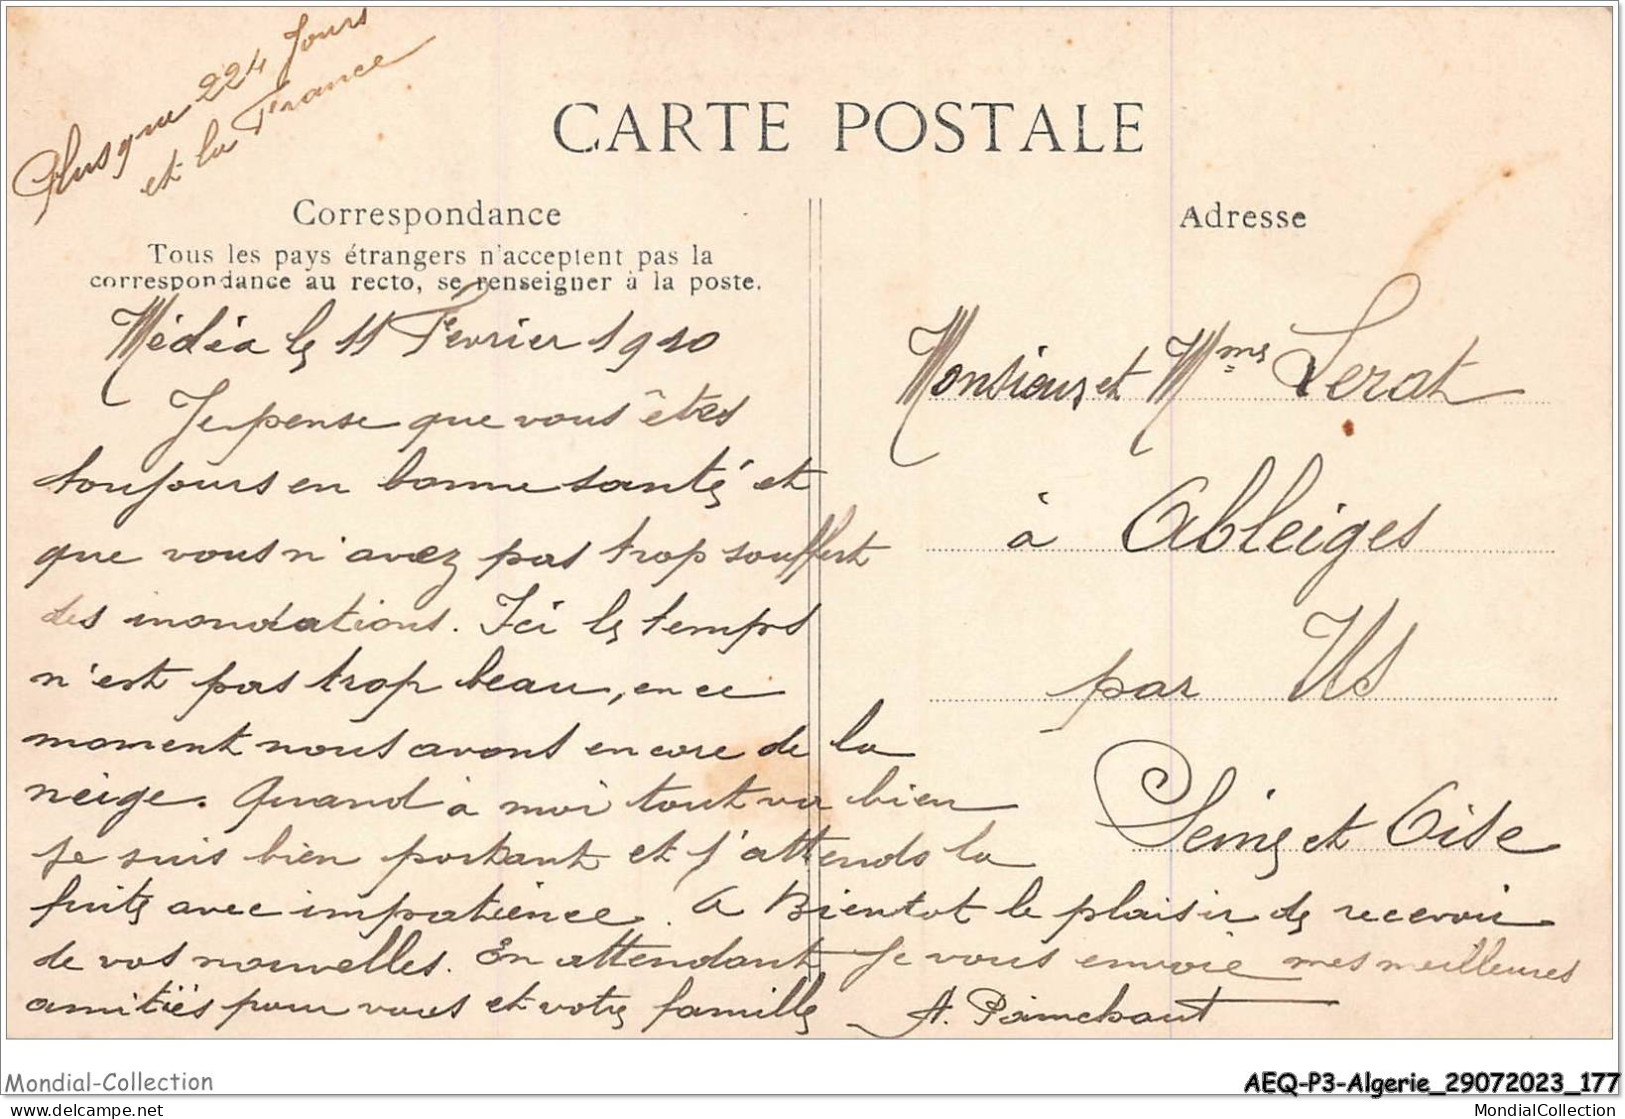 Plus que 224 Jours
et la France
CARTE POSTALE
Correspondance
Tous les pays étrangers n'acceptent pas la
correspondance au recto, se renseigner à la poste.
Adresse
Médéa le 11 Février 1910
Je pense que vous êtes
toujours en bonne santé et
que vous n'avez pas trop souffert
des inondations. Ici le temps
n'est pas trop beau, en ce
moment nous avons encore de la
neige. Quand à moi tout va bien
je suis bien portant et j'attends la
fuite avec impatience. A Bientot le plaisir de recevoir
de vos nouvelles. En attendant Je vous envoie mes meilleures
amitiés pour vous et votre famille
A. Painchaut
Monsieur et Mme Lerat
à Ableiges
par Us
Seine et Oise
Mondial-Collection
AEQ-P3-Algerie_29072023_177
www.delcampe.net
MondialCollection